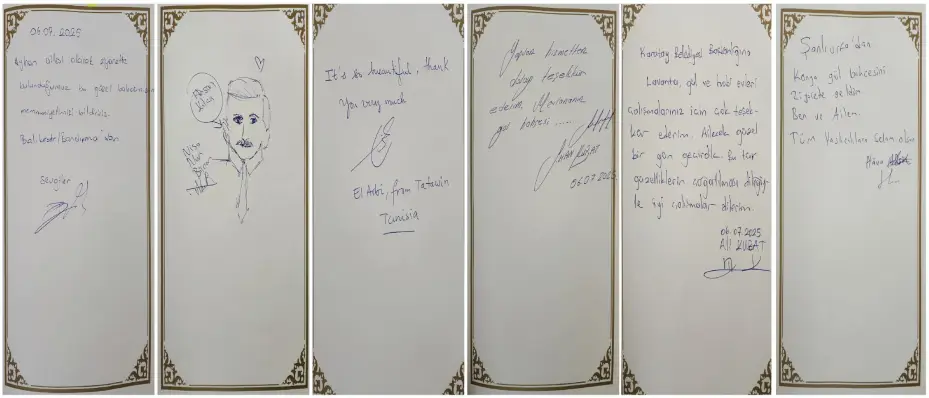 06.07.2025
Ayhan ailesi olarak ziyarette
bulunduğumuz bu güzel bahçenizden
memnuniyetimizi bildiririz.
Balıkesir/Bandırma'dan
Sevgiler
It's so beautiful, thank
you very much
El Arbi, from Tatawin
Tunisia
Yapılan hizmetten
dolayı teşekkür
ederim
gül bahçesi .....
06.07.2025
Karatay Belediyesi Başkanlığına
Lavanta, gül ve hobi evleri
çalışmalarınız için çok teşek-
kür ederim. Ailecek güzel
bir gün geçirdik. Bu tür
güzelliklerin çoğaltılması dileğiy-
le iyi çalışmalar dilerim.
06.07.2025
Ali KUBAT
Şanlıurfa'dan
Konya gül bahçesini
Ziyarete geldim
Ben ve Ailem.
Tüm
selam olsun